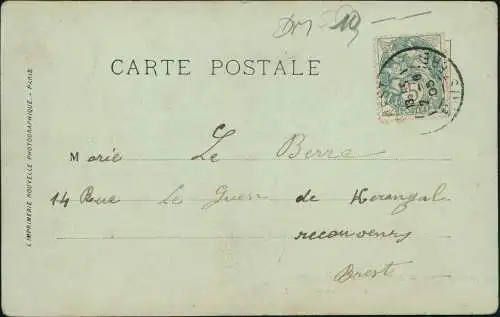 CARTE POSTALE
Marie Le Berre
14 Rue Le Guen de Kerangal
recouvrance
Brest
L'IMPRIMERIE NOUVELLE PHOTOGRAPHIQUE. - PARIS